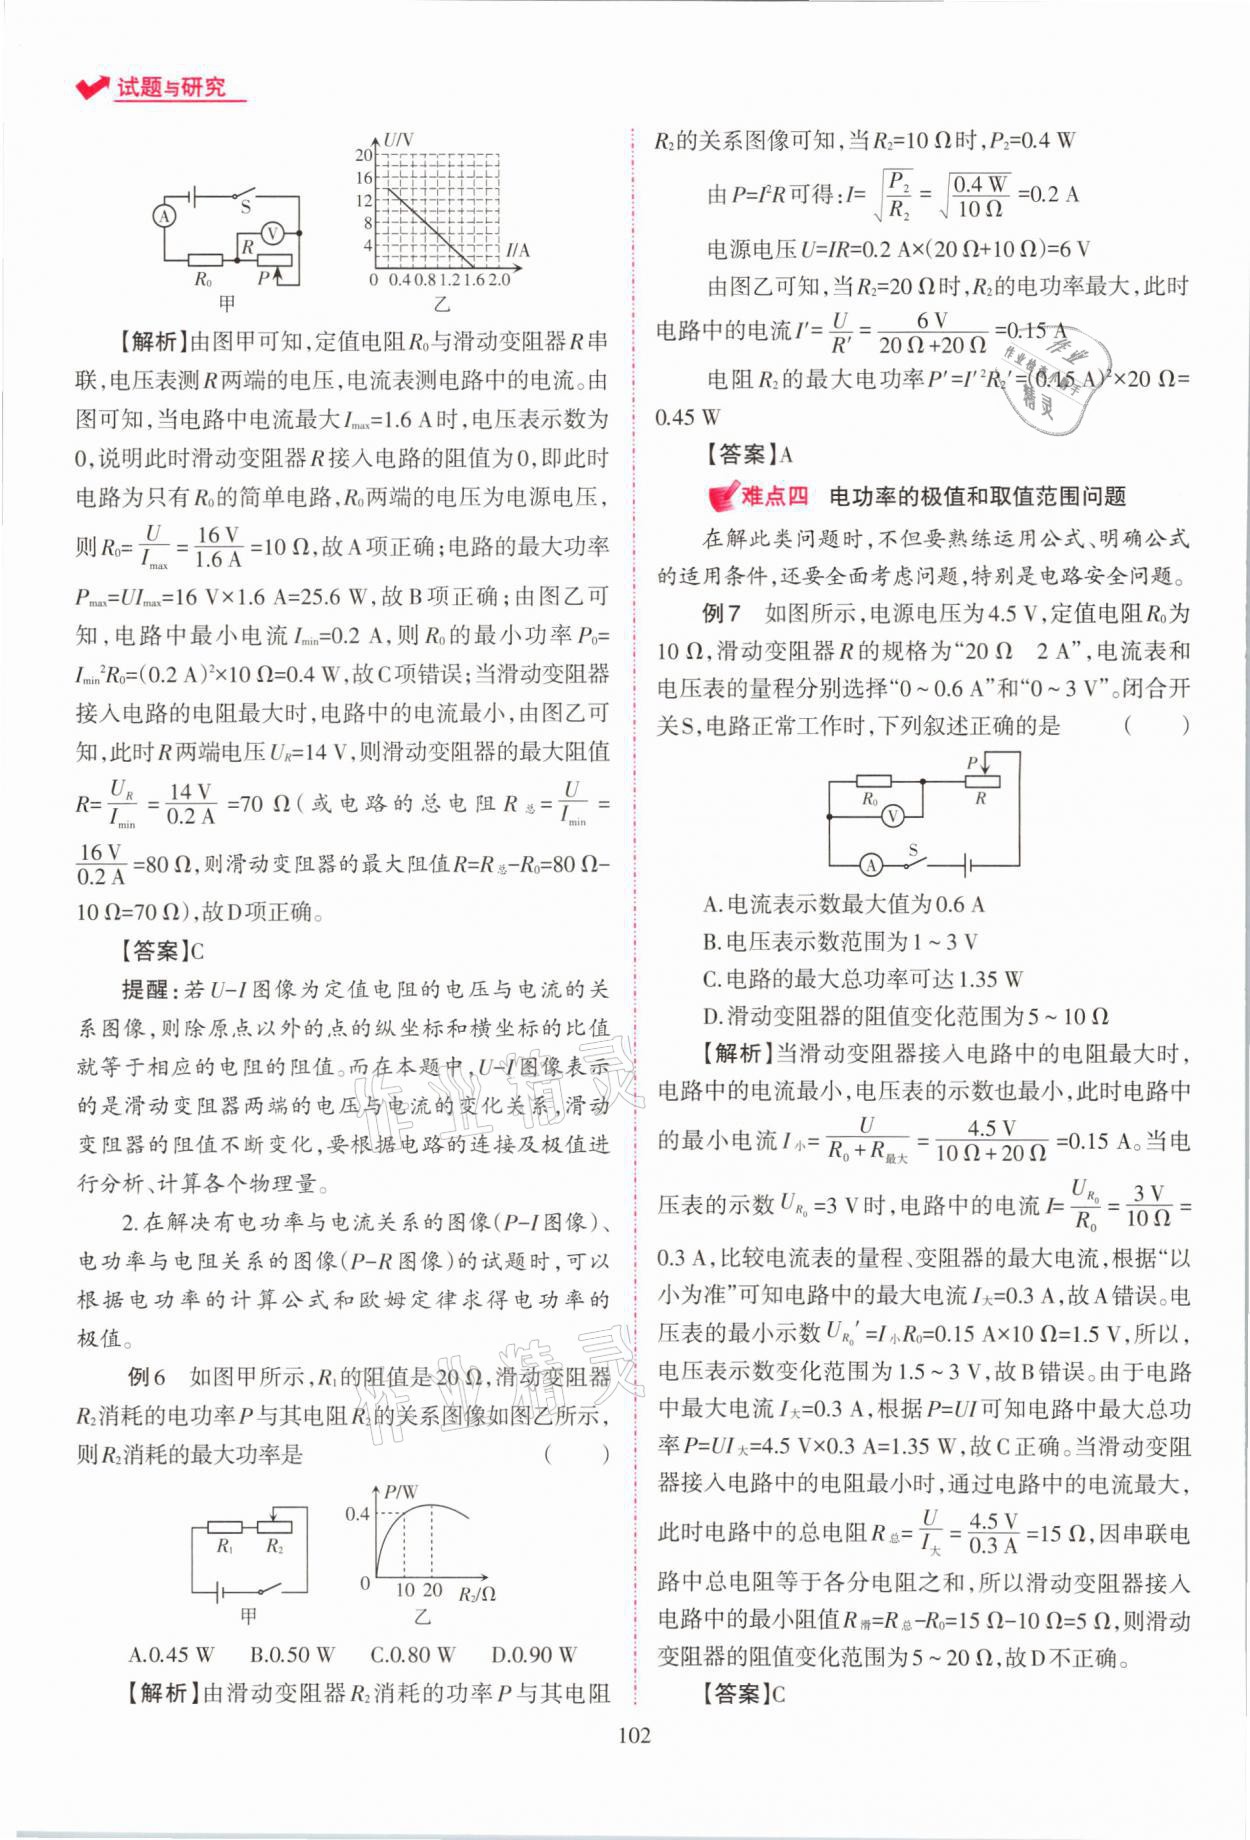 试题与研究
U/V
20
16
12
8
4
0 0.4 0.8 1.2 1.6 2.0
I/A
A
S
V
R
R₀
P
甲
乙
【解析】由图甲可知,定值电阻R₀与滑动变阻器R串
联,电压表测R两端的电压,电流表测电路中的电流。由
图可知,当电路中电流最大Iₘₐₓ=1.6 A时,电压表示数为
0,说明此时滑动变阻器R接入电路的阻值为0,即此时
电路为只有R₀的简单电路,R₀两端的电压为电源电压,
则R₀=U/Iₘₐₓ=16 V/1.6 A=10 Ω,故A项正确;电路的最大功率
Pₘₐₓ=UIₘₐₓ=16 V×1.6 A=25.6 W,故B项正确;由图乙可
知,电路中最小电流Iₘᵢₙ=0.2 A,则R₀的最小功率P₀=
Iₘᵢₙ²R₀=(0.2 A)²×10 Ω=0.4 W,故C项错误;当滑动变阻器
接入电路的电阻最大时,电路中的电流最小,由图乙可
知,此时R两端电压U_R=14 V,则滑动变阻器的最大阻值
R=U_R/Iₘᵢₙ=14 V/0.2 A=70 Ω(或电路的总电阻R总=U/Iₘᵢₙ=
16 V/0.2 A=80 Ω,则滑动变阻器的最大阻值R=R总-R₀=80 Ω-
10 Ω=70 Ω),故D项正确。
【答案】C
提醒:若U-I图像为定值电阻的电压与电流的关
系图像,则除原点以外的点的纵坐标和横坐标的比值
就等于相应的电阻的阻值。而在本题中,U-I图像表示
的是滑动变阻器两端的电压与电流的变化关系,滑动
变阻器的阻值不断变化,要根据电路的连接及极值进
行分析、计算各个物理量。
2.在解决有电功率与电流关系的图像(P-I图像)、
电功率与电阻关系的图像(P-R图像)的试题时,可以
根据电功率的计算公式和欧姆定律求得电功率的
极值。
例6 如图甲所示,R₁的阻值是20 Ω,滑动变阻器
R₂消耗的电功率P与其电阻R₂的关系图像如图乙所示,
则R₂消耗的最大功率是 ( )
R₁ R₂
甲
P/W
0.4
0 10 20 R₂/Ω
乙
A.0.45 W B.0.50 W C.0.80 W D.0.90 W
【解析】由滑动变阻器R₂消耗的功率P与其电阻
R₂的关系图像可知,当R₂=10 Ω时,P₂=0.4 W
由P=I²R可得:I=√(P₂/R₂)=√(0.4 W/10 Ω)=0.2 A
电源电压U=IR=0.2 A×(20 Ω+10 Ω)=6 V
由图乙可知,当R₂=20 Ω时,R₂的电功率最大,此时
电路中的电流I′=U/R′=6 V/(20 Ω+20 Ω)=0.15 A
电阻R₂的最大电功率P′=I′²R₂′=(0.15 A)²×20 Ω=
0.45 W
【答案】A
难点四 电功率的极值和取值范围问题
在解此类问题时,不但要熟练运用公式、明确公式
的适用条件,还要全面考虑问题,特别是电路安全问题。
例7 如图所示,电源电压为4.5 V,定值电阻R₀为
10 Ω,滑动变阻器R的规格为“20 Ω 2 A”,电流表和
电压表的量程分别选择“0～0.6 A”和“0～3 V”。闭合开
关S,电路正常工作时,下列叙述正确的是 ( )
P
R₀
R
V
A
S
A.电流表示数最大值为0.6 A
B.电压表示数范围为1～3 V
C.电路的最大总功率可达1.35 W
D.滑动变阻器的阻值变化范围为5～10 Ω
【解析】当滑动变阻器接入电路中的电阻最大时,
电路中的电流最小,电压表的示数也最小,此时电路中
的最小电流I小=U/(R₀+R最大)=4.5 V/(10 Ω+20 Ω)=0.15 A。当电
压表的示数U_R₀=3 V时,电路中的电流I=U_R₀/R₀=3 V/10 Ω=
0.3 A,比较电流表的量程、变阻器的最大电流,根据“以
小为准”可知电路中的最大电流I大=0.3 A,故A错误。电
压表的最小示数U_R₀′=I小R₀=0.15 A×10 Ω=1.5 V,所以,
电压表示数变化范围为1.5～3 V,故B错误。由于电路
中最大电流I大=0.3 A,根据P=UI可知电路中最大总功
率P=UI大=4.5 V×0.3 A=1.35 W,故C正确。当滑动变阻
器接入电路中的电阻最小时,通过电路中的电流最大,
此时电路中的总电阻R总=U/I大=4.5 V/0.3 A=15 Ω,因串联电
路中总电阻等于各分电阻之和,所以滑动变阻器接入
电路中的最小阻值R滑=R总-R₀=15 Ω-10 Ω=5 Ω,则滑动
变阻器的阻值变化范围为5～20 Ω,故D不正确。
【答案】C
102
作业精灵
作业精灵
作业
精灵